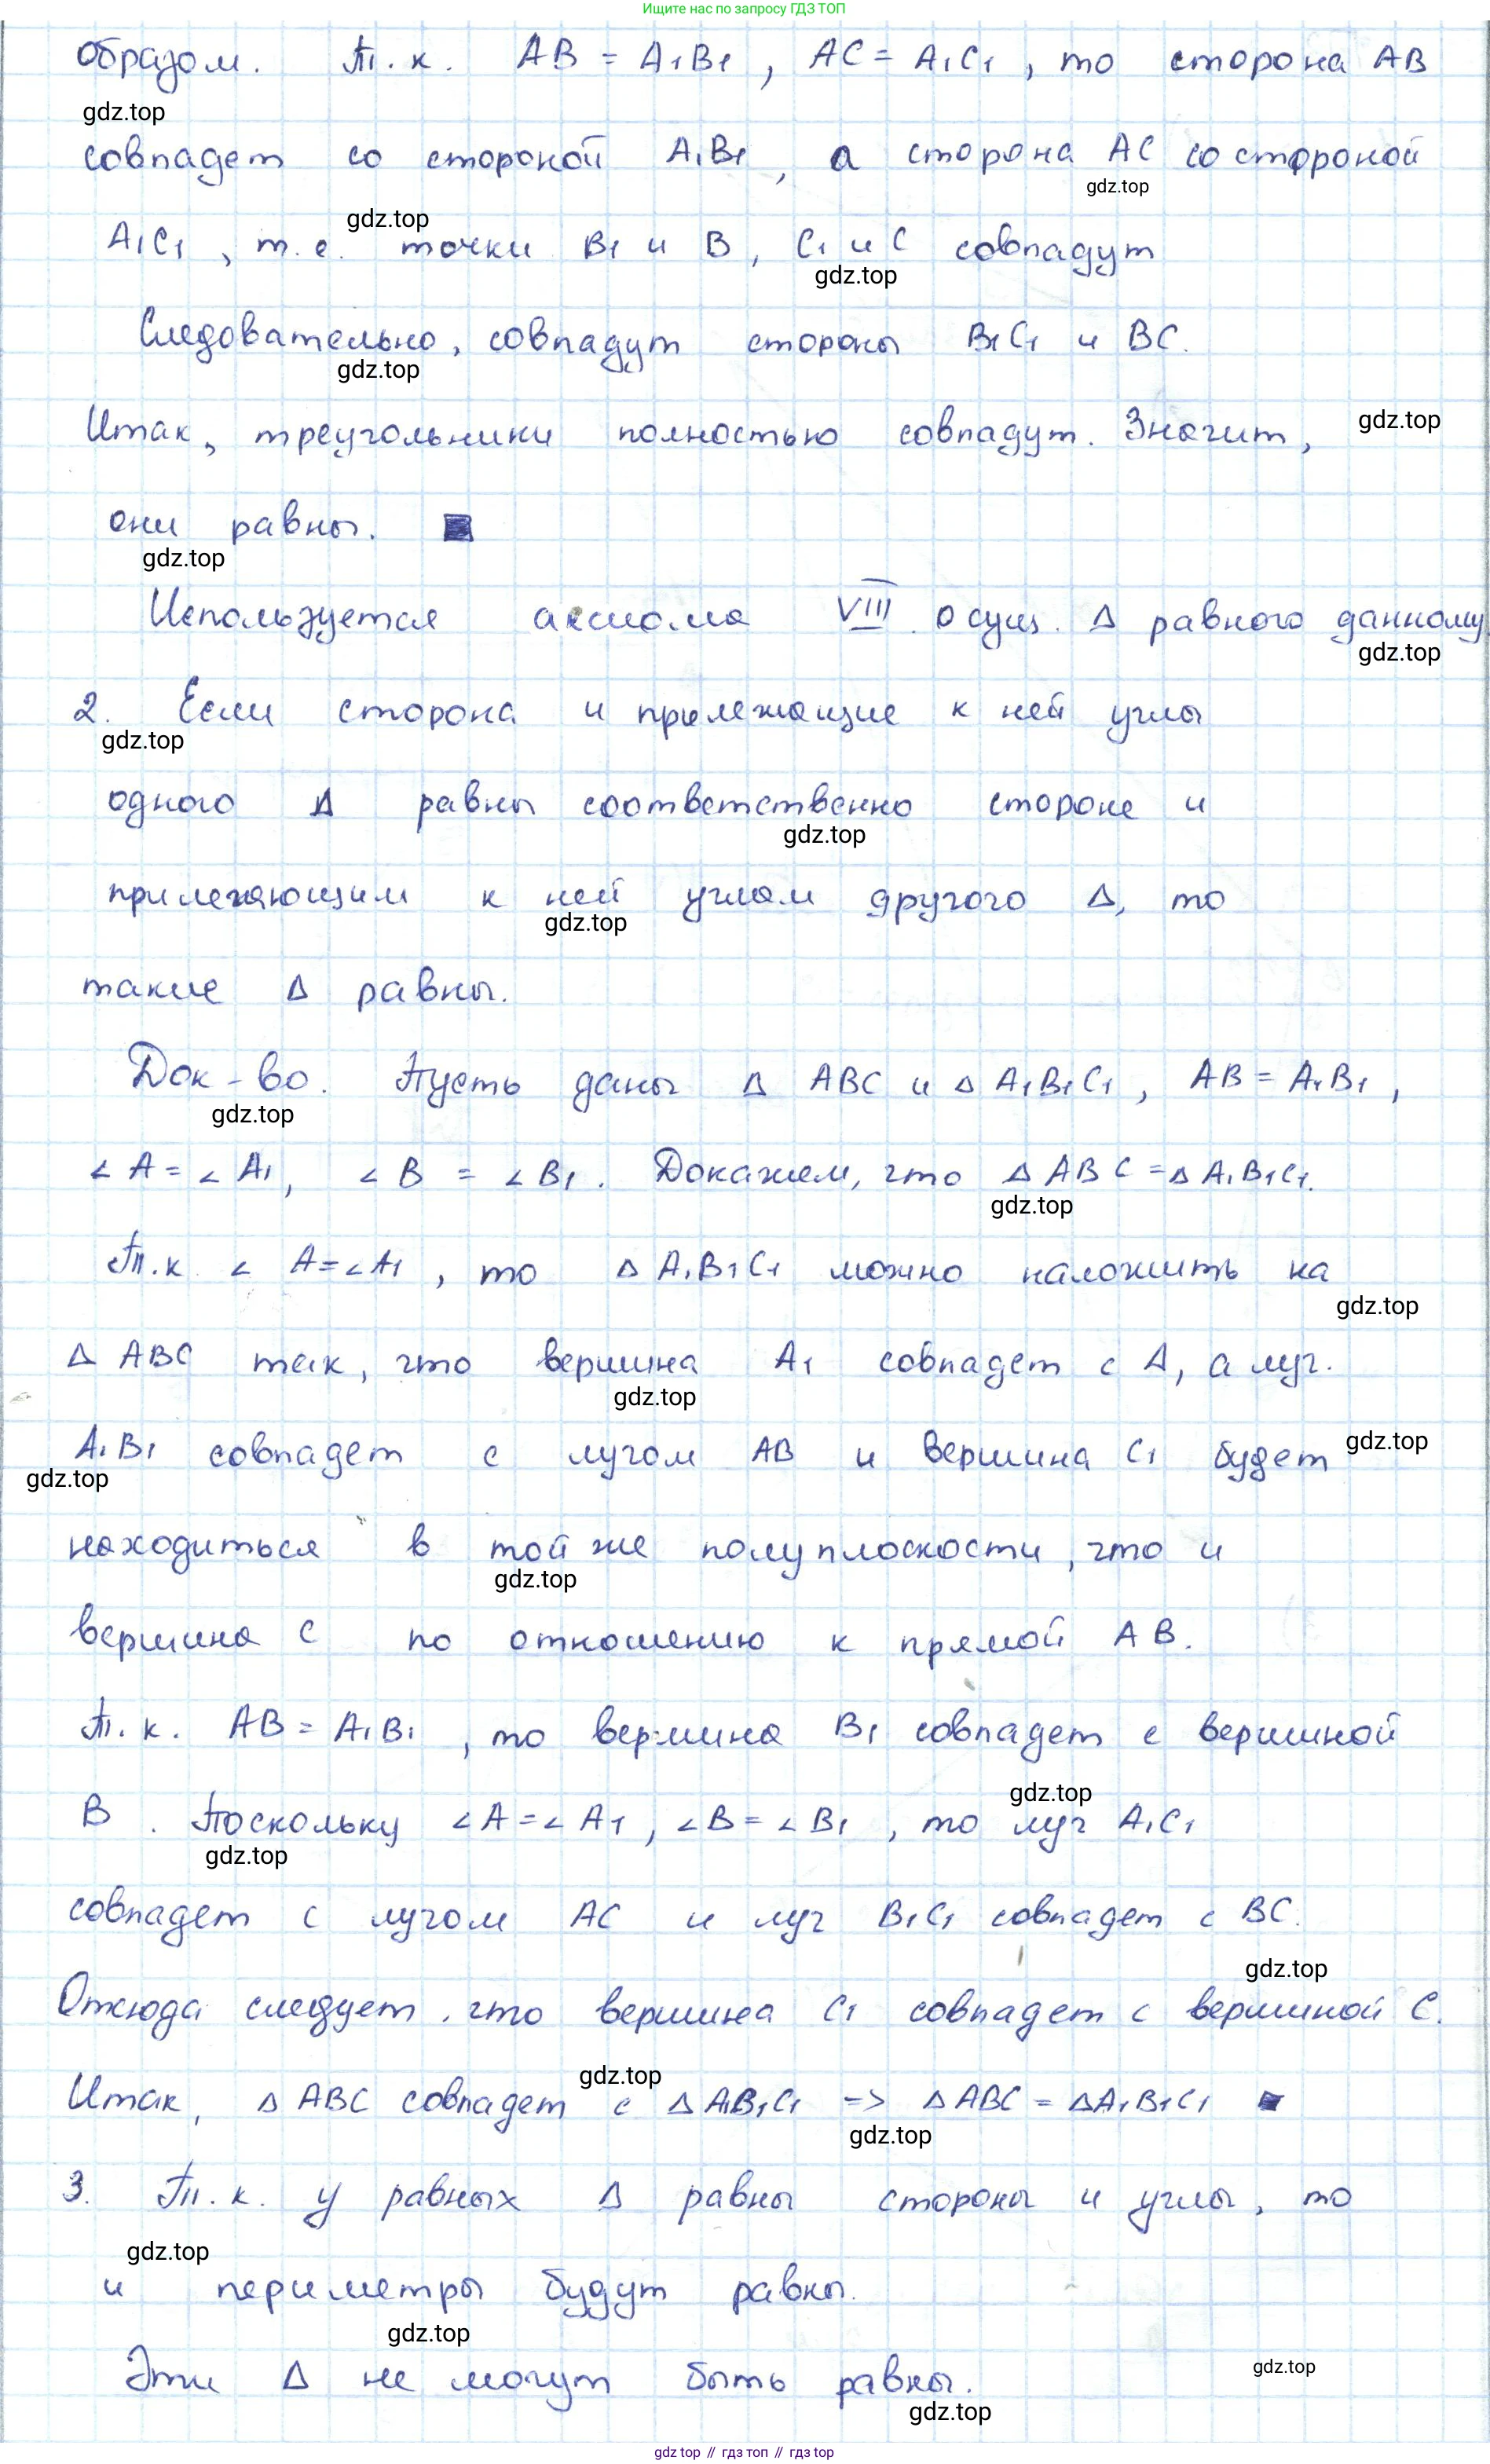 Ищите нас по запросу ГДЗ ТОП
образом. Т.к. AB = A₁B₁, AC = A₁C₁, то сторона AB
gdz.top
совпадет со стороной A₁B₁, а сторона AC со стороной
gdz.top
gdz.top
A₁C₁, т.е. точки B₁ и B, C₁ и C совпадут
gdz.top
Следовательно, совпадут стороны B₁C₁ и BC.
gdz.top
Итак, треугольники полностью совпадут. Значит,
gdz.top
они равны. ■
gdz.top
Используется аксиома VIII. О сущ. Δ равного данному
gdz.top
2. Если сторона и прилежащие к ней углы
gdz.top
одного Δ равны соответственно стороне и
gdz.top
прилегающим к ней углам другого Δ, то
gdz.top
такие Δ равны.
Док-во. Пусть даны Δ ABC и Δ A₁B₁C₁, AB = A₁B₁,
gdz.top
∠A = ∠A₁, ∠B = ∠B₁. Докажем, что Δ ABC = Δ A₁B₁C₁.
gdz.top
Т.к. ∠A = ∠A₁, то Δ A₁B₁C₁ можно наложить на
gdz.top
Δ ABC так, что вершина A₁ совпадет с A, а луч.
gdz.top
A₁B₁ совпадет с лучом AB и вершина C₁ будет
gdz.top
gdz.top
находиться в той же полуплоскости, что и
gdz.top
вершина C по отношению к прямой AB.
Т.к. AB = A₁B₁, то вершина B₁ совпадет с вершиной
gdz.top
B. Поскольку ∠A = ∠A₁, ∠B = ∠B₁, то луч A₁C₁
gdz.top
совпадет с лучом AC и луч B₁C₁ совпадет с BC.
gdz.top
Отсюда следует, что вершина C₁ совпадет с вершиной C.
gdz.top
Итак, Δ ABC совпадет с Δ A₁B₁C₁ => Δ ABC = Δ A₁B₁C₁ ■
gdz.top
3. Т.к. у равных Δ равны стороны и углы, то
gdz.top
и периметры будут равны.
gdz.top
Эти Δ не могут быть равны.
gdz.top
gdz.top
gdz top // гдз топ // gdz top